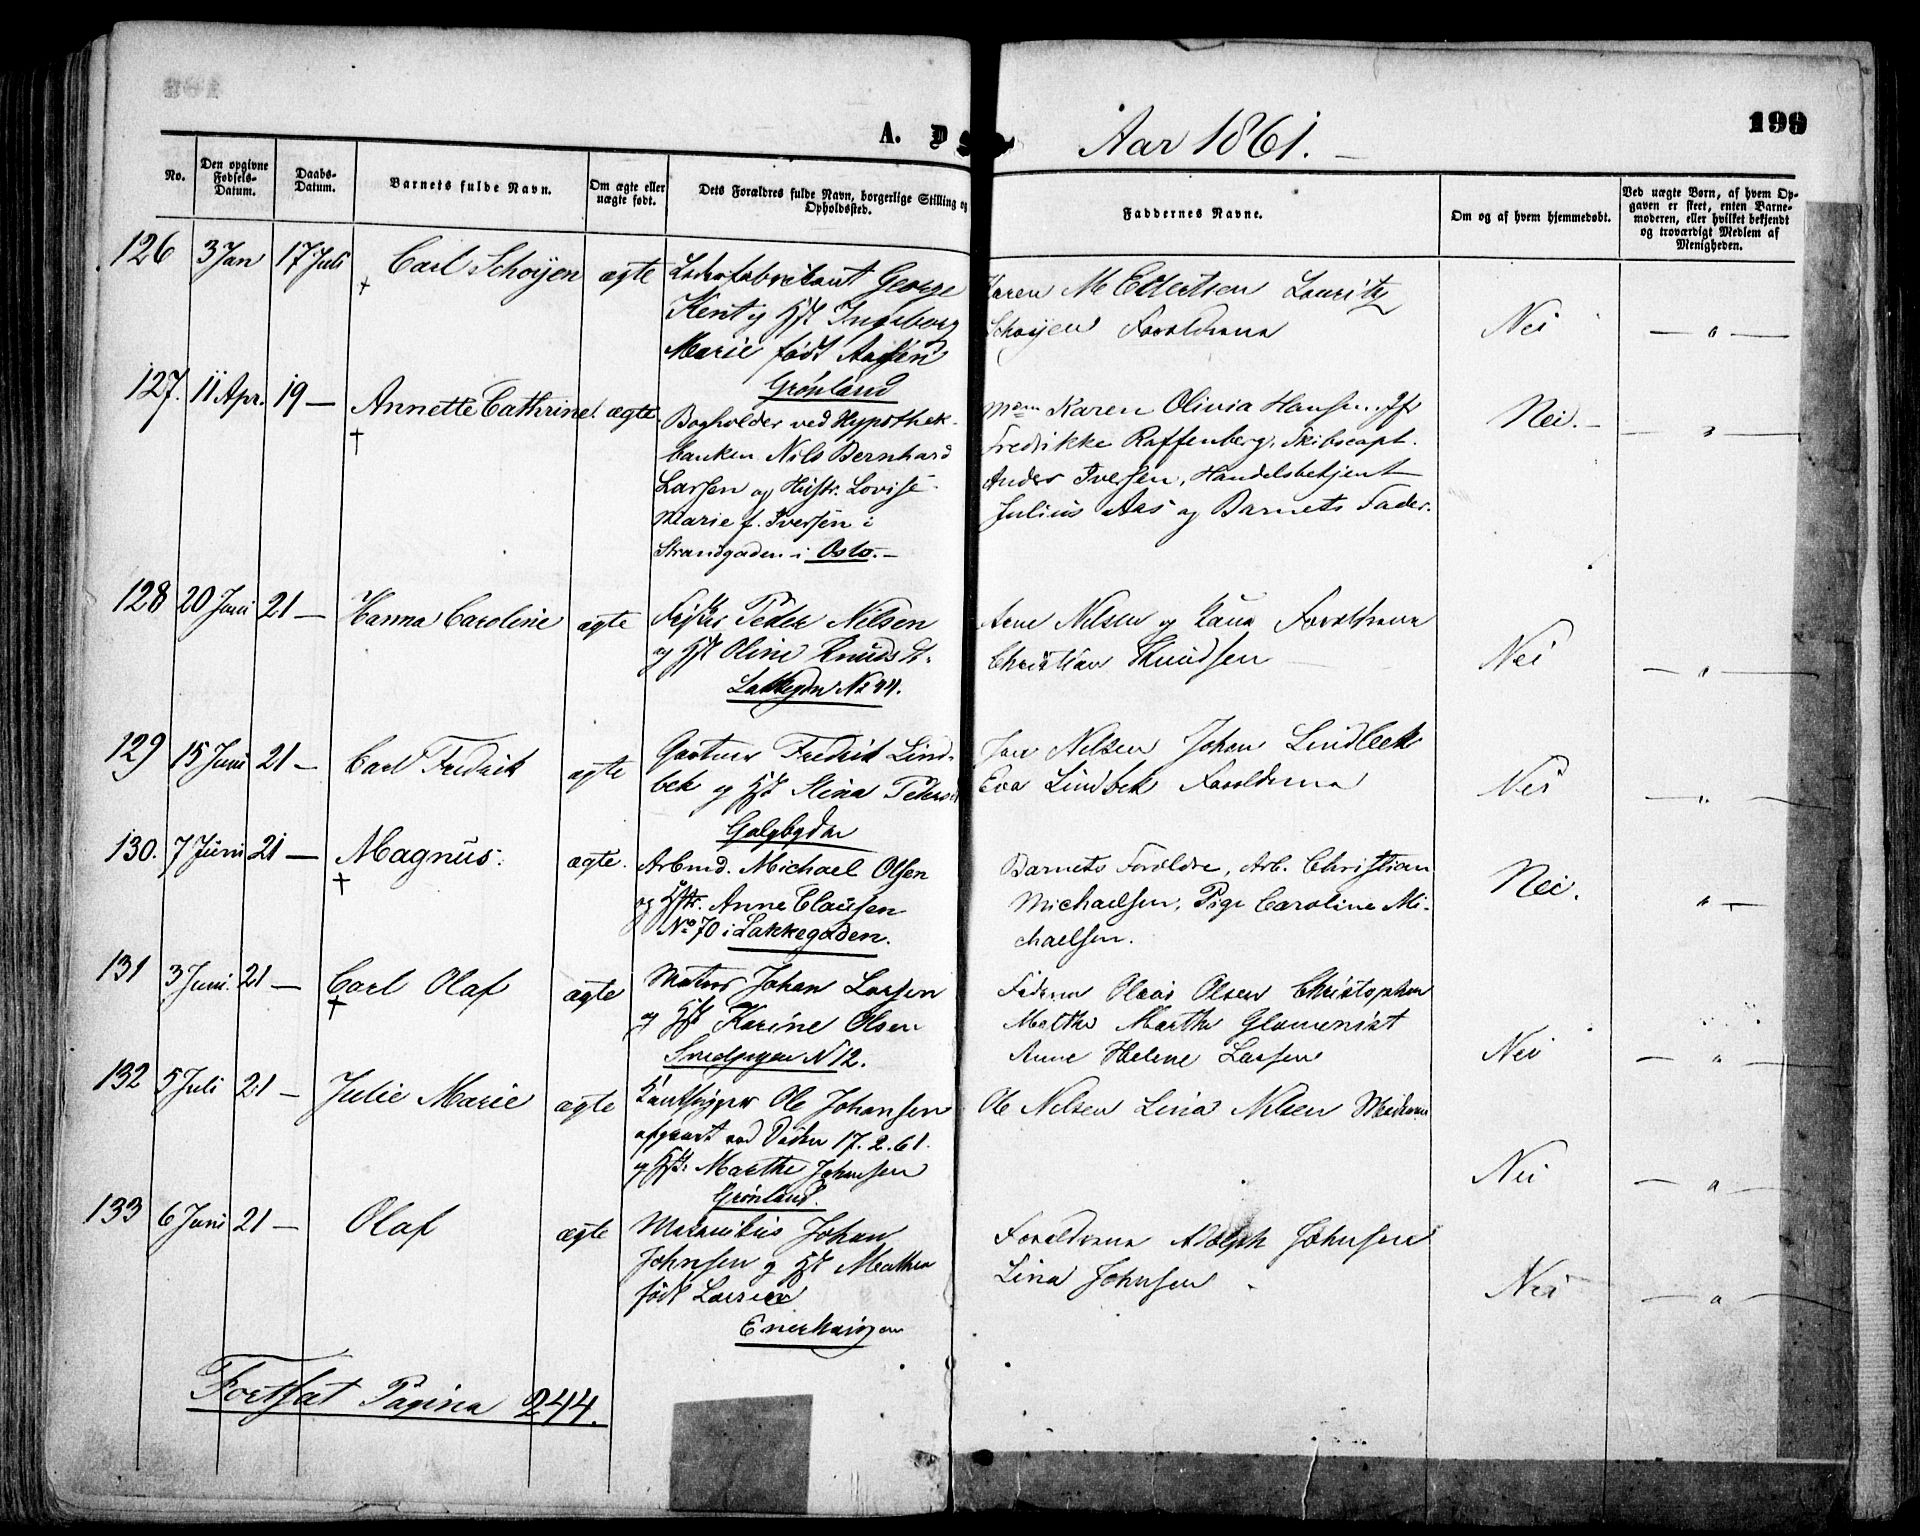 A. D
Aar 1861.
199
No.
Den opgivne Fødsels-Datum.
Daabs-Datum.
Barnets fulde Navn.
Om ægte eller uægte født.
Dets Forældres fulde Navn, borgerlige Stilling og Opholdssted.
Faddernes Navne.
Om og af hvem hjemmedøbt.
Ved uægte Børn, af hvem Opgaven er skeet, enten Barnemoderen, eller hvilket bekjendt og troværdigt Medlem af Menigheden.
126 3 Jan 17 Juli Carl Schøyen ægte
Læderfabrikant George
Kent og Hst Ingeborg
Marie født Aasen
Grønland
Karen M Ellertsen Lauritz
Schøyen Forældrene
Nei
127. 11 Apr. 19 — Annette Cathrine ægte
Bogholder ved Hypothek-
banken Nils Bernhard
Larsen og Hustr. Lovise
Marie f. Iversen i
Strandgaden i Oslo. —
Mdm Karen Olivia Hansen, Jfr
Fredrikke Raffenberg, Skibscapt.
Anders Iversen, Handelsbetjent
Julius Aas og Barnets Fader.
Nei. —
128 20 Juni 21 — Hanna Caroline ægte
Fisker Peder Nilsen
og Hst Oline Knudsdt.
Lakkegdn No 44.
Arne Nilsen og Kona Forældrene
Christian Knudsen
Nei
129 15 Juni 21 — Carl Fredrik ægte
Gartner Fredrik Lind-
bek og Hst Stina Peters
Galgbgden
Jon Nilsen Johan Lindbek
Eva Lindbek Forældrene
Nei
130. 7 Juni 21 — Magnus. ægte.
Arbmd. Michael Olsen
og Hstr. Anne Clausen
No 70 i Lakkegaden.
Barnets Forældre, Arb. Christian
Michaelsen, Pige Caroline Mi-
chaelsen.
Nei.
131 3 Juni. 21 — Carl Olaf ægte
Matros Johan Larsen
og Hst Karine Olsen
Smedgangen N 12.
Faderen Olaus Olsen Christopher
Malthe Marthe
Anne Helene Larsen
Nei
132 5 Juli 21 — Julie Marie ægte
Ole Johansen
afgaaet ved Døden 17. 2. 61.
og Hst. Marthe Johansen
Grønland.
Ole Nilsen Lina Nilsen Moderen
Nei
133 6 Juni 21 — Olaf ægte
Johan
Johnsen og Hst Mathea
født Larsen
Enerhaugen
Forældrene Adolph Johnsen
Lina Johnsen
Nei
Fortsat Pagina 244.